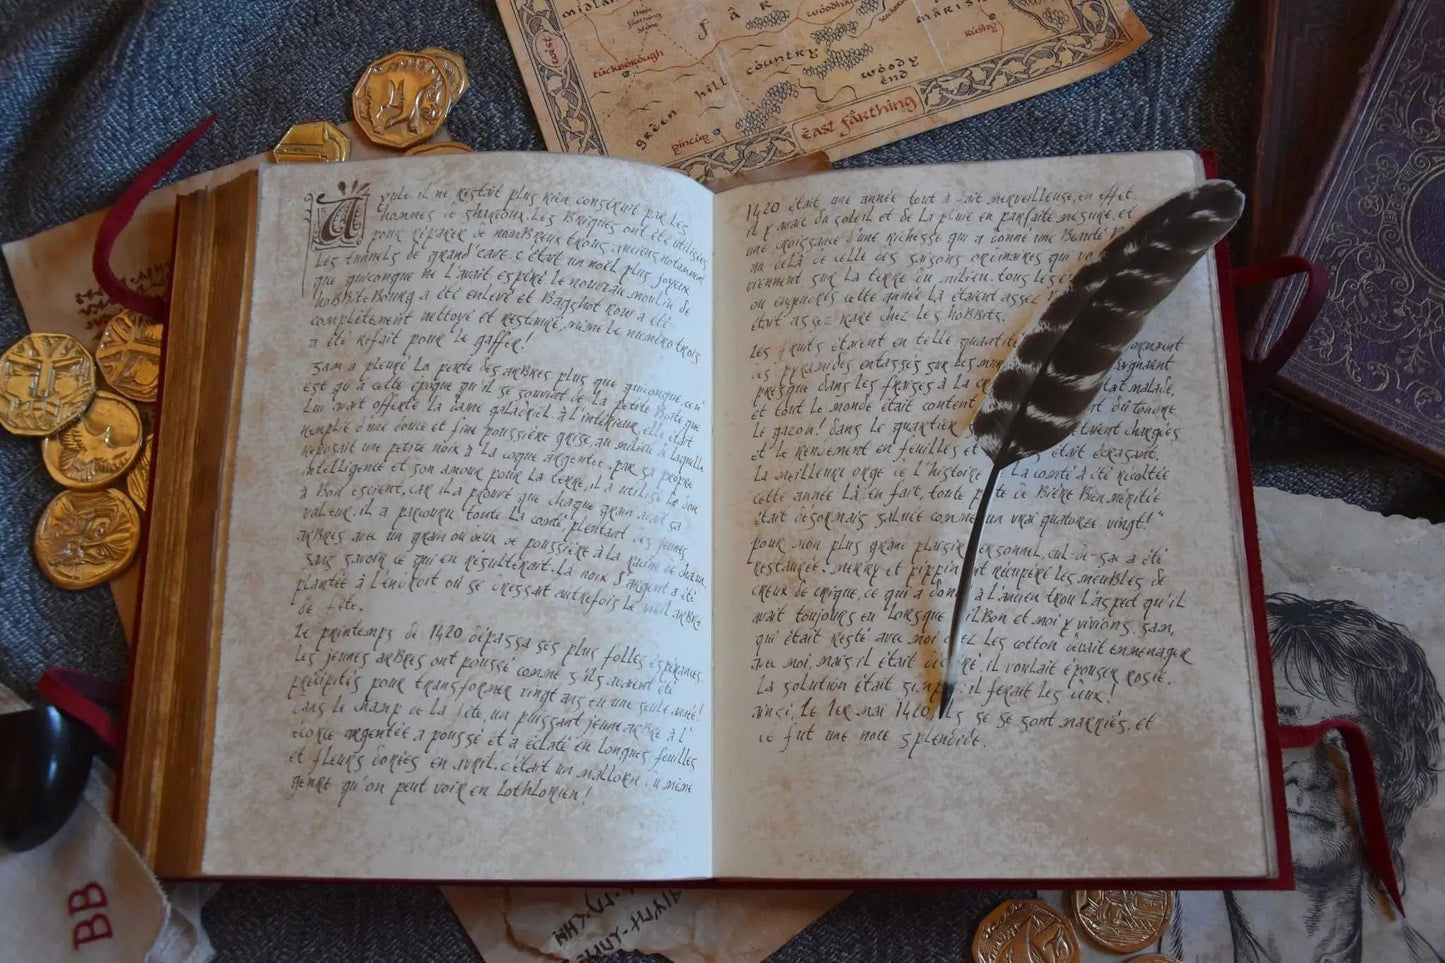 midlan
three farthing stone
fär
woodhall
marish
west
tuckborough
rushy
country
green hill
woody end
pincup
east farthing
A yule, il ne restait plus rien construit par les
hommes de Sharkûr. Les briques ont été utilisées
pour réparer de nombreux trous anciens notamment
les tunnels de Grand'Cave. C'était un noël plus joyeux
que quiconque ne l'avait espéré. Le nouveau moulin de
Hobbitebourg a été enlevé et Bagshot Row a été
complètement nettoyé et restauré, même le numéro trois
a été refait pour le gaffer!
Sam a pleuré la perte des arbres plus que quiconque. Ce n'
est qu'à cette époque qu'il se souvint de la petite boîte que
lui avait offerte la Dame Galadriel. À l'intérieur, elle était
remplie d'une douce et fine poussière grise, au milieu de laquelle
reposait une petite noix à la coque argentée. Par sa propre
intelligence et son amour pour la terre, il a utilisé le don
à bon escient, car il a prouvé que chaque grain avait sa
valeur. Il a parcouru toute la Comté, plantant des jeunes
arbres avec un grain ou deux de poussière à la racine de chacun,
sans savoir ce qui en résulterait. La noix d'argent a été
plantée à l'endroit où se dressait autrefois le vieil arbre
de fête.
Le printemps de 1420 dépassa ses plus folles espérances.
Les jeunes arbres ont poussé comme s'ils avaient été
précipités pour transformer vingt ans en une seule année!
Dans le champ de la fête, un puissant jeune arbre à l'
écorce argentée a poussé et a éclaté en longues feuilles
et fleurs dorées en avril. C'était un mallorn du même
genre qu'on peut voir en Lothlorien!
1420 était une année tout à fait merveilleuse, en effet.
Il y avait du soleil et de la pluie en parfaite mesure, et
une croissance d'une richesse qui a donné une beauté
au delà de celle des saisons ordinaires qui
viennent sur la Terre du Milieu. Tous les
ou engendrés cette année là étaient assez
était assez rare chez les hobbits.
Les fruits étaient en telle quantité ornaient
des pyramides entassés sur les baignaient
presque dans les fraises à la était malade,
et tout le monde était content du tondre
le gazon! Dans le Quartier étaient chargées
et le rendement en feuilles et était écrasant.
La meilleure orge de l'histoire la Comté a été récoltée
cette année là. En fait, toute pinte de bière bien méritée
était désormais saluée comme un vrai quatorze-vingt!"
Pour mon plus grand plaisir personnel, Cul-de-Sac a été
restauré. Merry et Pippin ont récupéré les meubles de
Creux de Crique, ce qui a donné à l'ancien trou l'aspect qu'il
avait toujours eu lorsque Bilbon et moi y vivions. Sam,
qui était resté avec moi chez les Cotton devait emménager
avec moi, mais il était déchiré, il voulait épouser Rosie.
La solution était simple: il ferait les deux!
Ainsi, le 1er mai 1420, ils se se sont marriés, et
ce fut une noce splendide.
BB